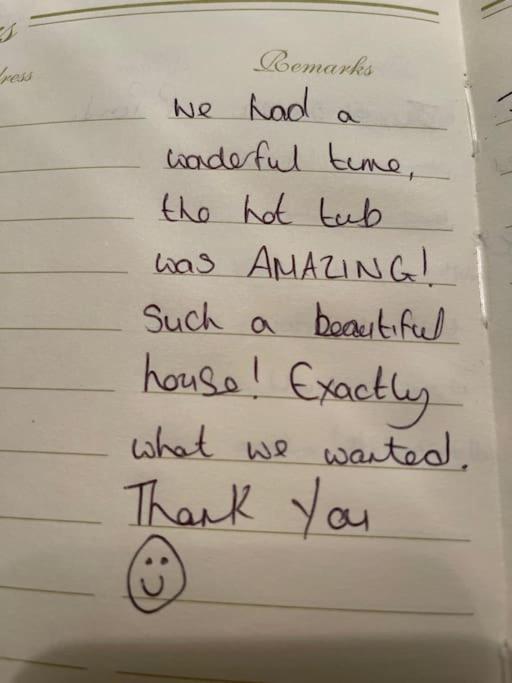 Remarks
ress
we had a
wonderful time,
the hot tub
was AMAZING!
Such a beautiful
house! Exactly
what we wanted.
Thank You